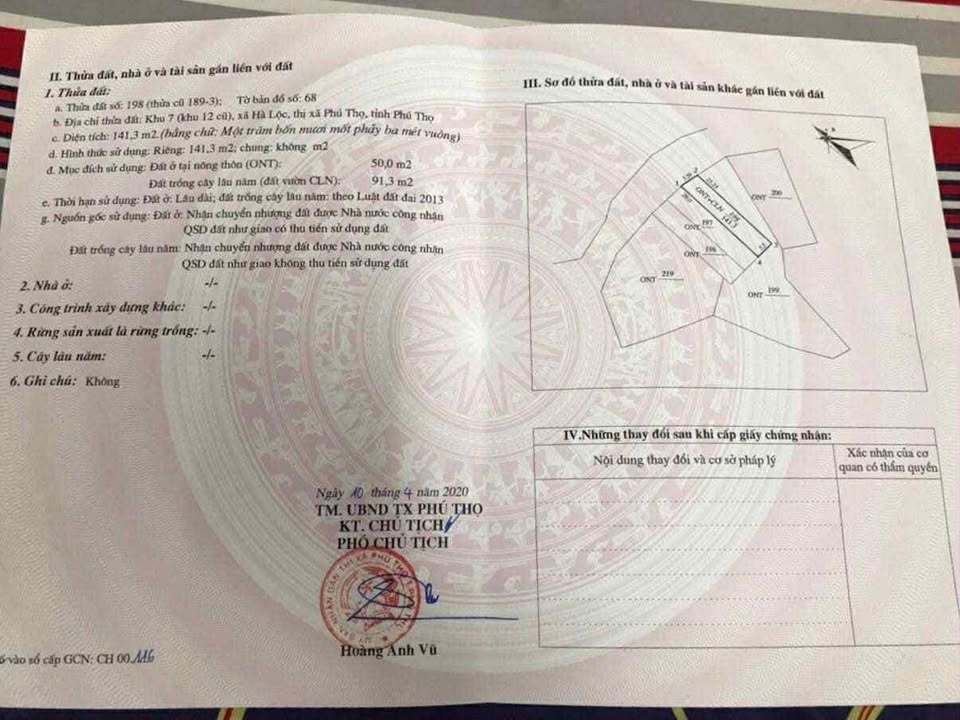 II. Thửa đất, nhà ở và tài sản gắn liền với đất
1. Thửa đất:
a. Thửa đất số: 198 (thửa cũ 189-3); Tờ bản đồ số: 68
b. Địa chỉ thửa đất: Khu 7 (khu 12 cũ), xã Hà Lộc, thị xã Phú Thọ, tỉnh Phú Thọ
c. Diện tích: 141,3 m2 (bằng chữ: Một trăm bốn mươi mốt phẩy ba mét vuông)
d. Hình thức sử dụng: Riêng: 141,3 m2; chung: không m2
đ. Mục đích sử dụng: Đất ở tại nông thôn (ONT): 50,0 m2
Đất trồng cây lâu năm (đất vườn CLN): 91,3 m2
e. Thời hạn sử dụng: Đất ở: Lâu dài; đất trồng cây lâu năm: theo Luật đất đai 2013
g. Nguồn gốc sử dụng: Đất ở: Nhận chuyển nhượng đất được Nhà nước công nhận
QSD đất như giao có thu tiền sử dụng đất
Đất trồng cây lâu năm: Nhận chuyển nhượng đất được Nhà nước công nhận
QSD đất như giao không thu tiền sử dụng đất
2. Nhà ở: -/-
3. Công trình xây dựng khác: -/-
4. Rừng sản xuất là rừng trồng: -/-
5. Cây lâu năm: -/-
6. Ghi chú: Không
Ngày 10 tháng 4 năm 2020
TM. UBND TX PHÚ THỌ
KT. CHỦ TỊCH
PHÓ CHỦ TỊCH
Hoàng Anh Vũ
ố vào sổ cấp GCN: CH 00116
III. Sơ đồ thửa đất, nhà ở và tài sản khác gắn liền với đất
1
2
ONT+CLN 198
141,3
3
4
ONT 200
ONT 197
ONT 196
ONT 219
ONT 199
IV.Những thay đổi sau khi cấp giấy chứng nhận:
Nội dung thay đổi và cơ sở pháp lý
Xác nhận của cơ
quan có thẩm quyền